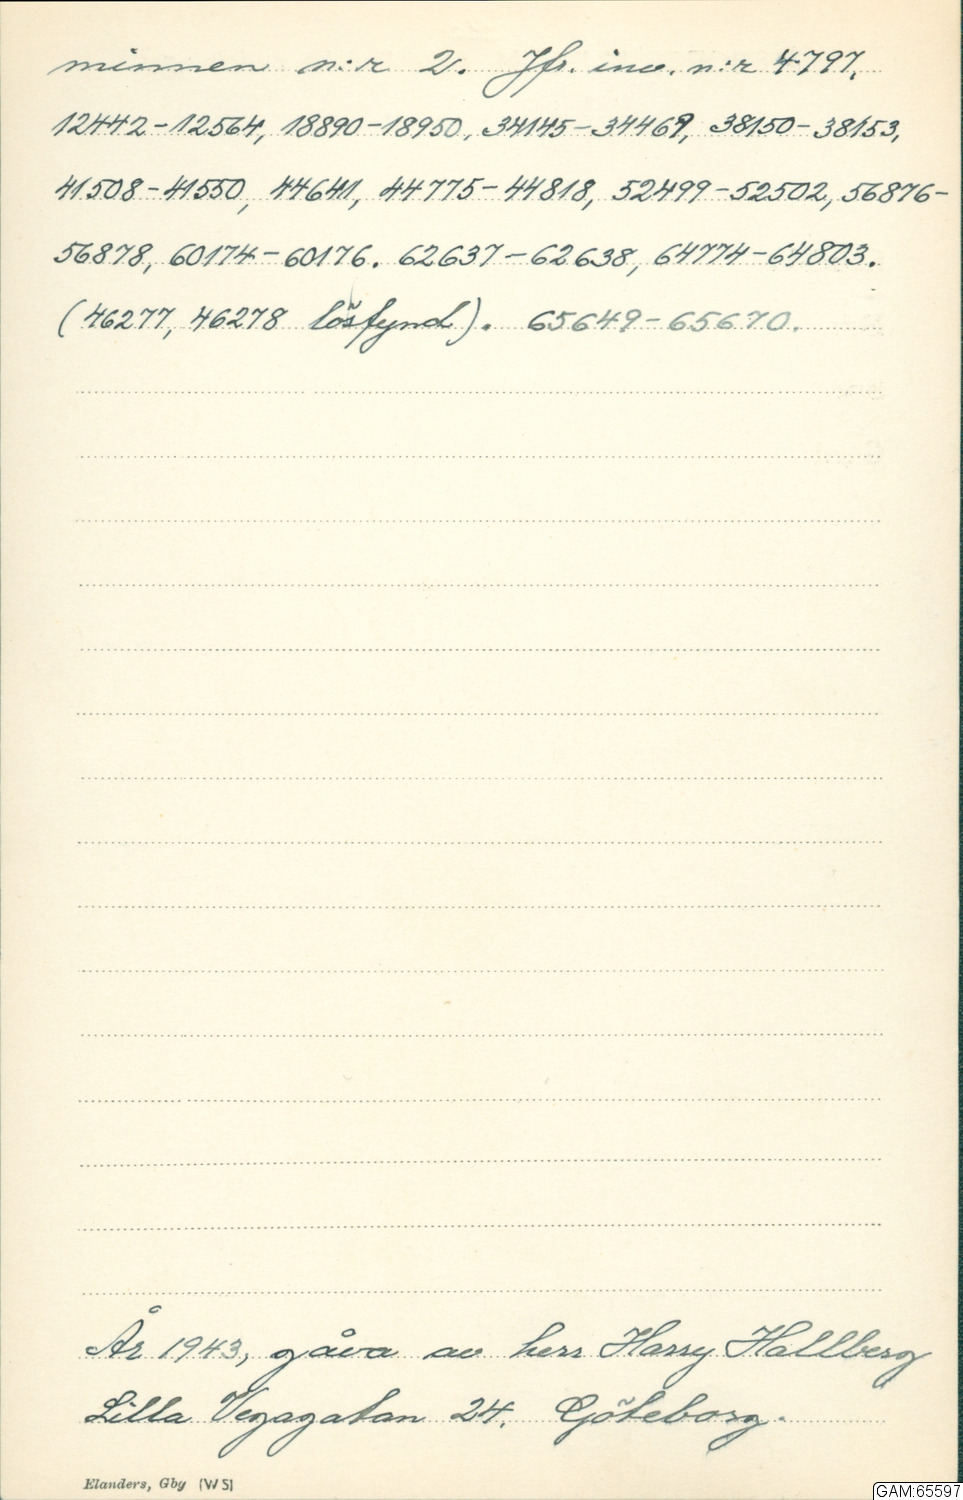 minnen n:r 2. Jfr. inv. n:r 4797,
12442-12564, 18890-18950, 34145-34469, 38150-38153,
41508-41550, 44641, 44775-44818, 52499-52502, 56876-
56878, 60174-60176. 62637-62638, 64774-64803.
(46277, 46278 lösfynd). 65649-65670.
År 1943, gåva av herr Harry Hallberg
Lilla Vegagatan 24. Göteborg.
Elanders, Gby (WS)
GAM:65597